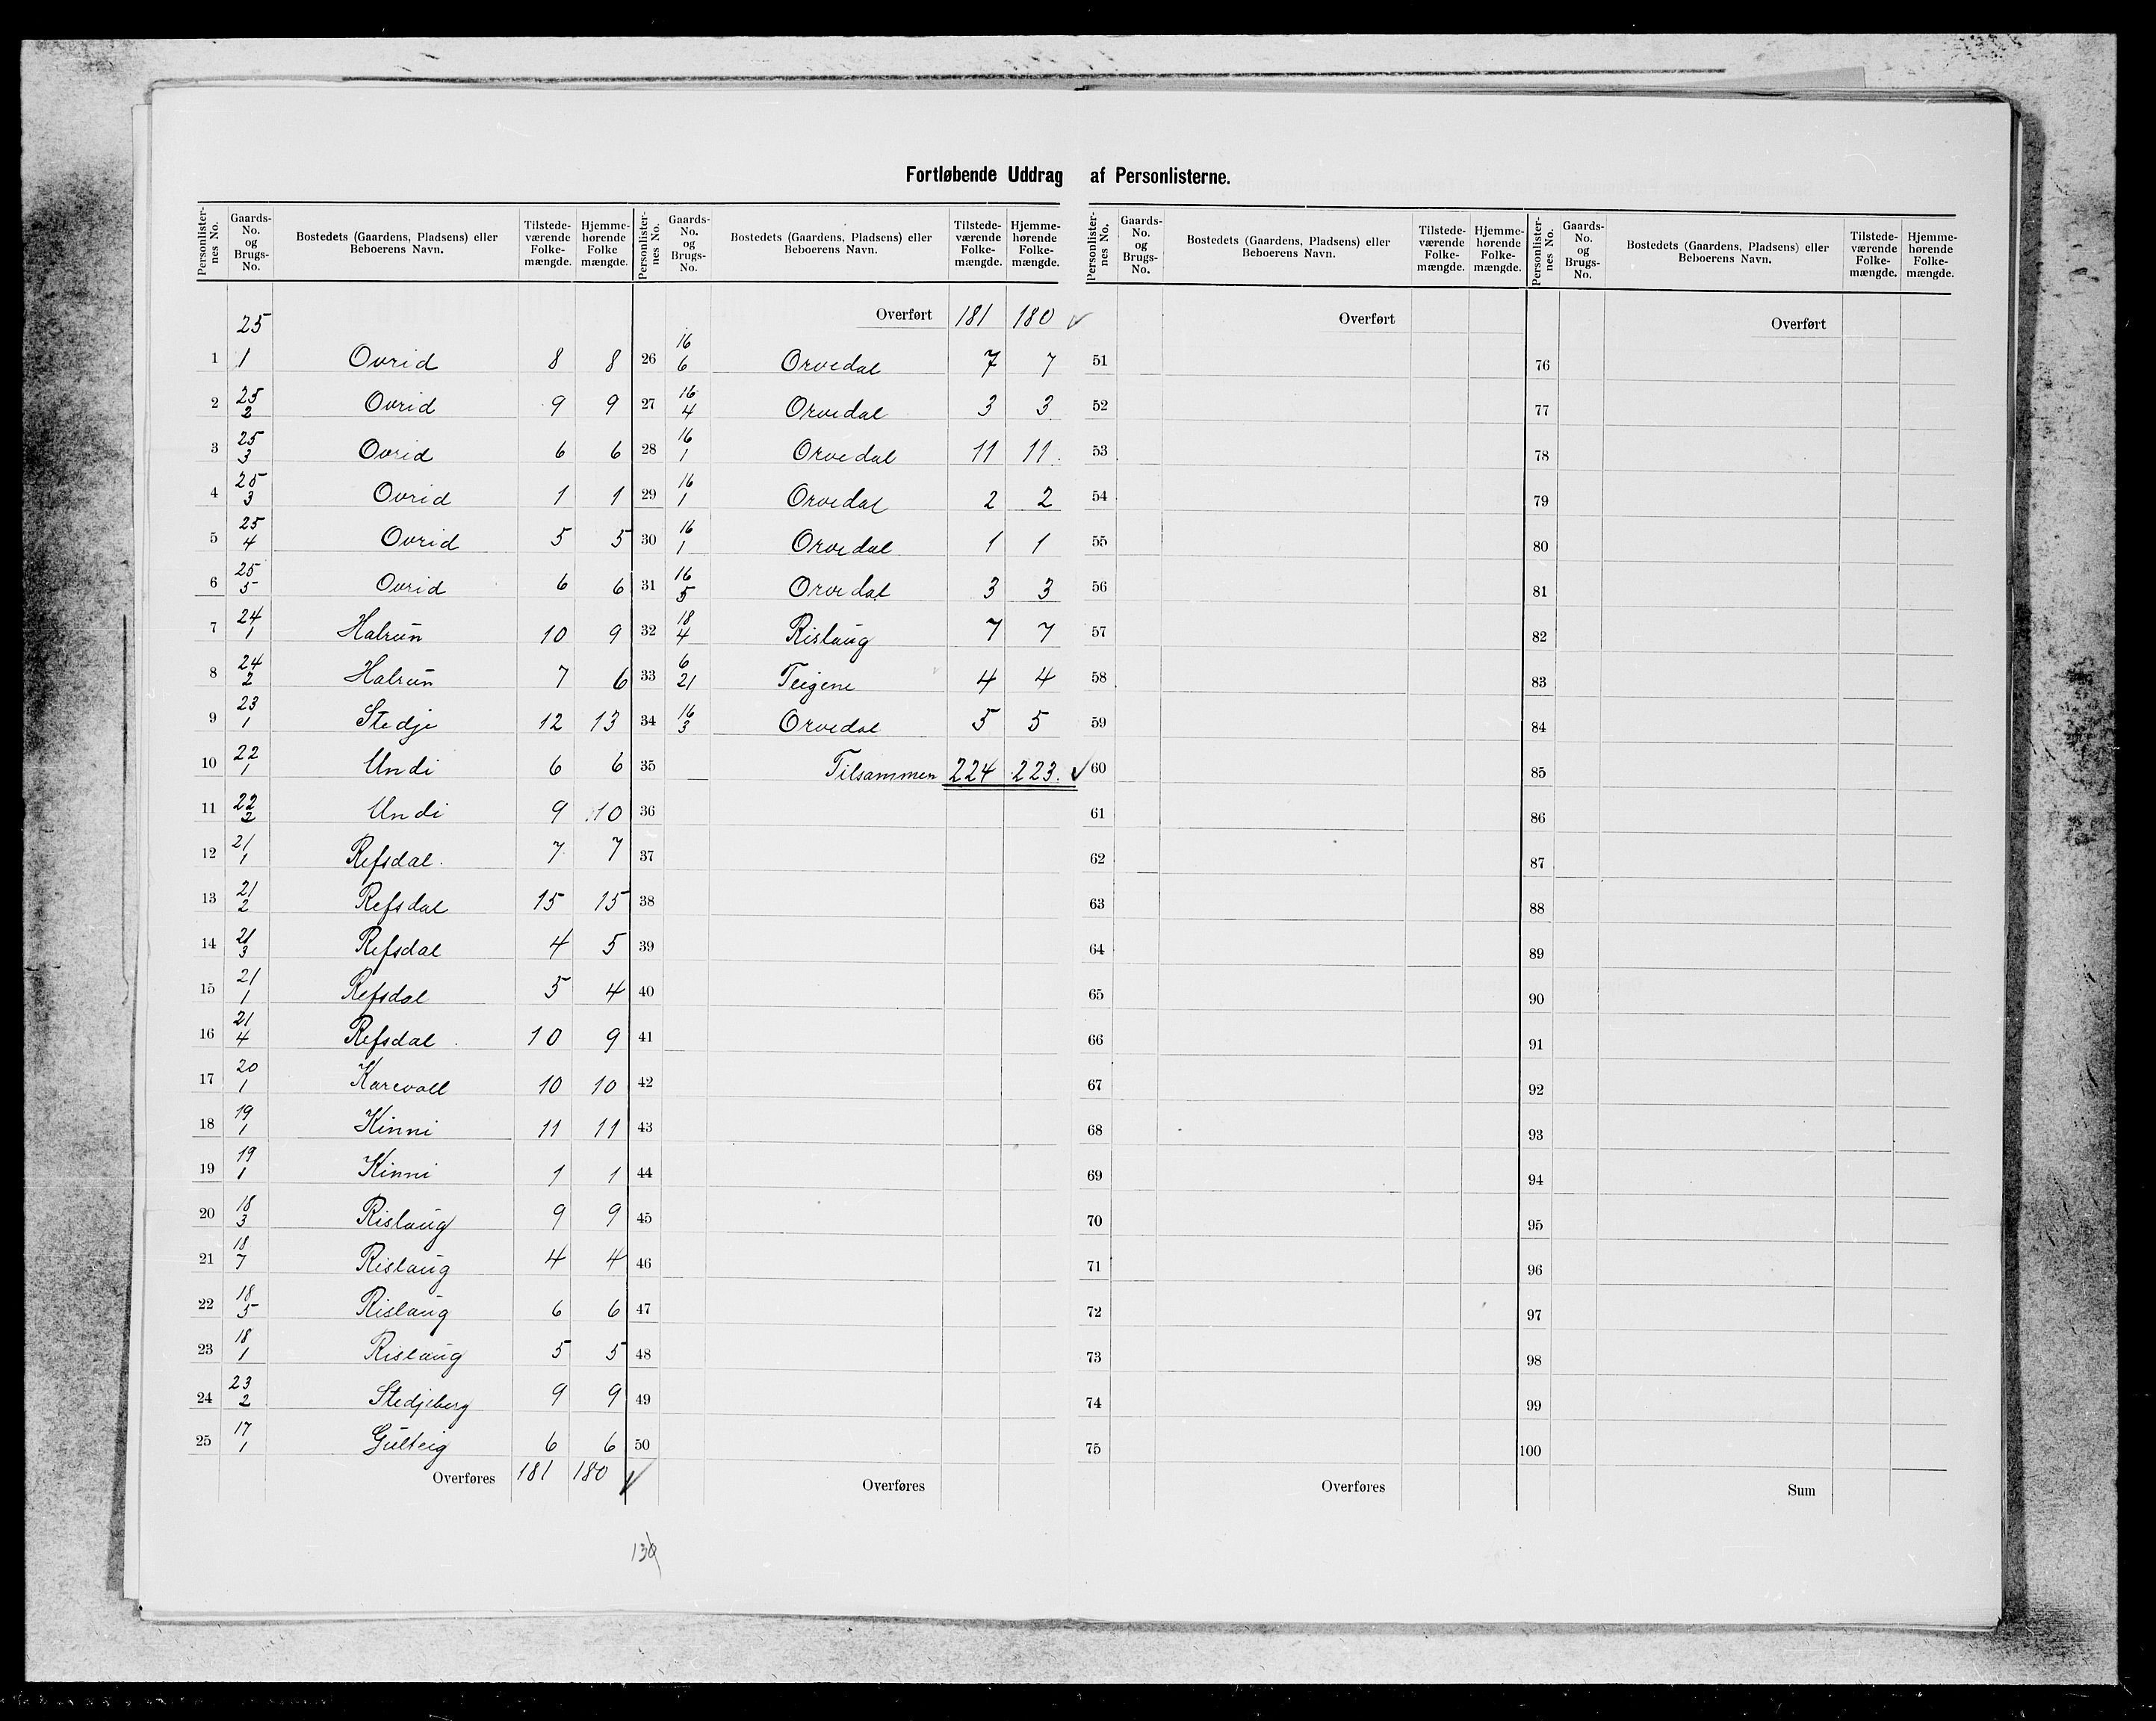 Fortløbende Uddrag af Personlisterne.
Personlister-nes No. Gaards-No. og Brugs-No. Bostedets (Gaardens, Pladsens) eller Beboerens Navn. Tilstede-værende Folke-mængde. Hjemme-hørende Folke mængde.
25
1 1 Ovrid 8 8
2 25 2 Ovrid 9 9
3 25 3 Ovrid 6 6
4 25 3 Ovrid 1 1
5 25 4 Ovrid 5 5
6 25 5 Ovrid 6 6
7 24 1 Halrun 10 9
8 24 2 Halrun 7 6
9 23 1 Stedje 12 13
10 22 1 Undi 6 6
11 22 2 Undi 9 10
12 21 1 Refsdal. 7 7
13 21 2 Refsdal 15 15
14 21 3 Refsdal 4 5
15 21 1 Refsdal 5 4
16 21 4 Refsdal 10 9
17 20 1 Karevoll 10 10
18 19 1 Kinni 11 11
19 19 1 Kinni 1 1
20 18 3 Rislaug 9 9
21 18 7 Rislaug 4 4
22 18 5 Rislaug 6 6
23 18 1 Rislaug 5 5
24 23 2 Stedjeberg 9 9
25 17 1 Gulteig 6 6
Overføres 181 180
Personlister-nes No. Gaards-No. og Brugs-No. Bostedets (Gaardens, Pladsens) eller Beboerens Navn. Tilstede-værende Folke-mængde. Hjemme-hørende Folke-mængde.
Overført 181 180 ✓
26 16 6 Orvedal 7 7
27 16 4 Orvedal 3 3
28 16 1 Orvedal 11 11.
29 16 1 Orvedal 2 2
30 16 1 Orvedal 1 1
31 16 5 Orvedal 3 3
32 18 4 Rislaug 7 7
33 6 21 Teigene 4 4
34 16 3 Orvedal 5 5
35 Tilsammen 224 223. ✓
36
37
38
39
40
41
42
43
44
45
46
47
48
49
50
Overføres
Personlister-nes No. Gaards-No. og Brugs-No. Bostedets (Gaardens, Pladsens) eller Beboerens Navn. Tilstede-værende Folke-mængde. Hjemme-hørende Folke-mængde.
Overført
51
52
53
54
55
56
57
58
59
60
61
62
63
64
65
66
67
68
69
70
71
72
73
74
75
Overføres
Personlister-nes No. Gaards-No. og Brugs-No. Bostedets (Gaardens, Pladsens) eller Beboerens Navn. Tilstede-værende Folke-mængde. Hjemme-hørende Folke-mængde.
Overført
76
77
78
79
80
81
82
83
84
85
86
87
88
89
90
91
92
93
94
95
96
97
98
99
100
Sum